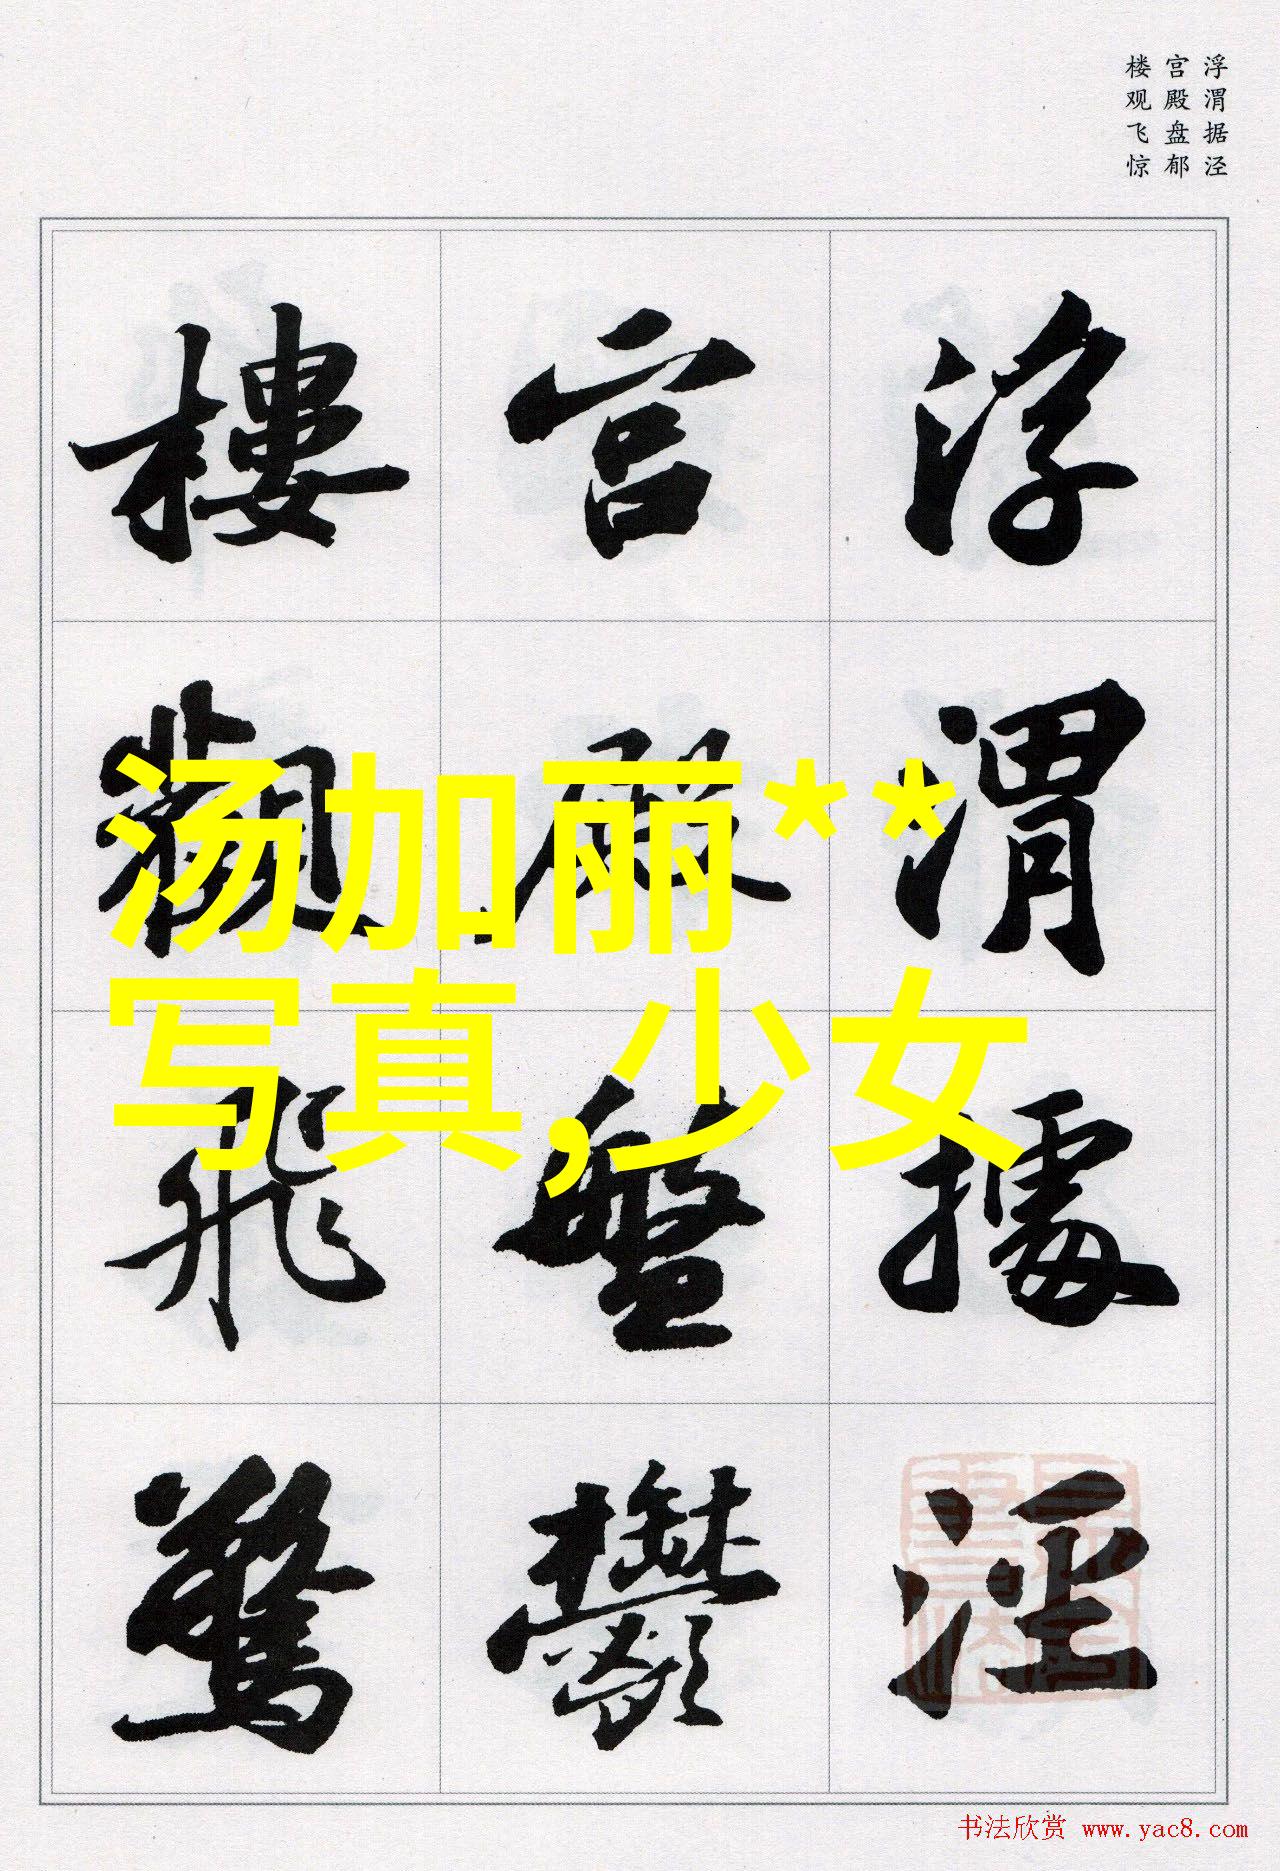 浮渭据泾
宫殿盘郁
楼观飞惊
浮渭據涇
宫殿盤鬱
樓觀飛驚
汤加丽**
写真,少女
书法欣赏 www.yac8.com